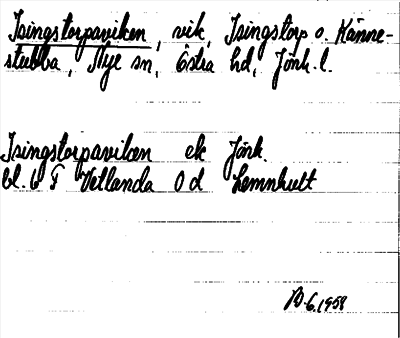 Isingstorpaviken, vik, Isingstorp o. Känne-
stubba, Nye sn, Östra hd, Jönk. l.
Isingstorpaviken ek Jönk.
bl. 6 F Vetlanda O d Lemnhult
6.1958